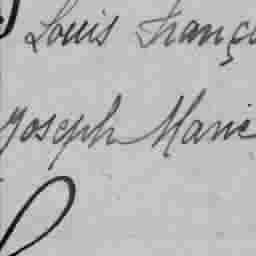 Louis Franç
Joseph Marie